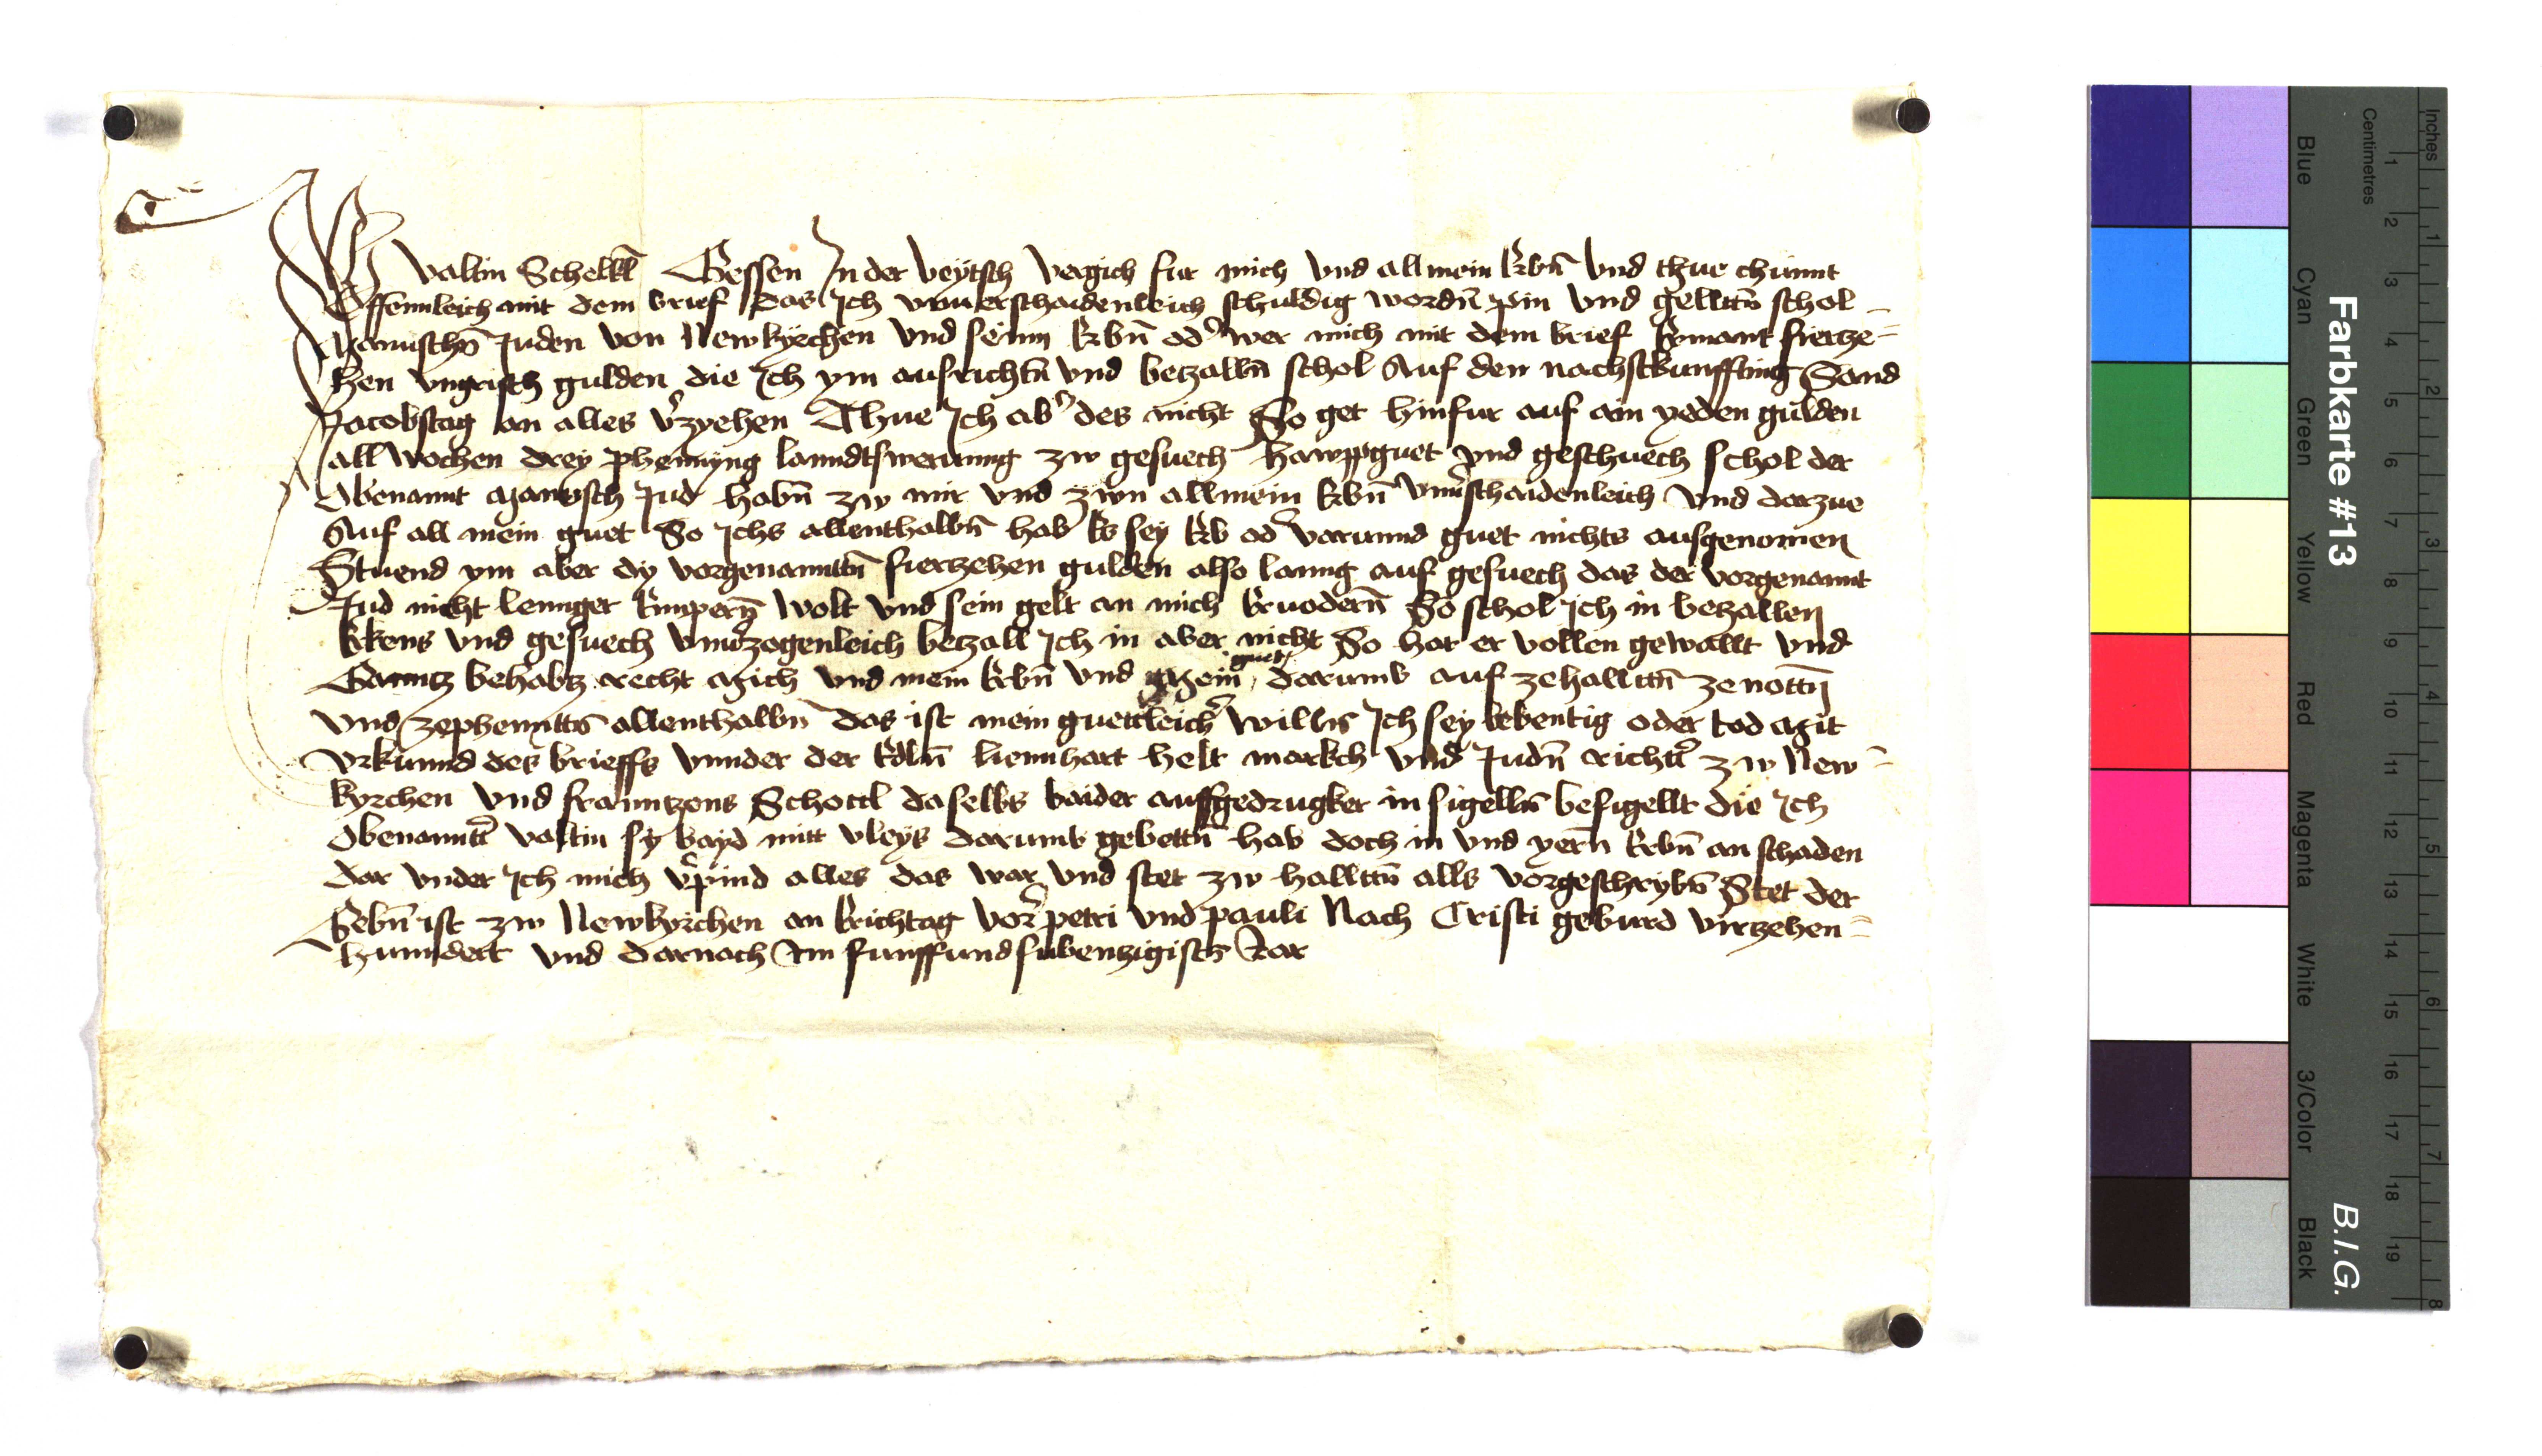 Ich Valtin Schelkl Gessen In der Veÿtsch Vergich fur mich Vnd all mein Erbn̄ Vnd thue chunnt
Offennleich mit dem brief Das Ich vnuerschaidenleich schuldig wordn̄ pin Vnd gelltn̄ schol
Manuschn̄ Juden Von Newkyrchen Vnd seinn Erbn̄ od' wer mich mit dem brief Ermant fierze=
hen vngrisch gulden die Ich ym ausrichtn̄ Vnd betzalln̄ schol Auf den nachstkunffting Sand
Jacobstag an alles v'zyehen Thue Ich ab' des nicht So get hinfur auf ain yeden gulden
all Wochen drey phennyng lanndtswerunng zw gesuech hawppguet Vnd geschuech schol der
Obenannt Manusch Jud habn̄ zw mir Vnd zwn allmein Erbn̄ Vnu'schaidenleich Vnd darzue
Auf all mein guet So Ichs allenthalbn̄ hab Es sey Erb od' Varunnd guet nichts ausgenomen
Stuend ym aber dy Vorgenanntn̄ fierzehen gulden also lanng auf gesuech das der Vorgenannt
Jud nicht lennger Empern̄ Wolt Vnd sein gelt an mich Eruodern̄ So schol Ich in betzallen
Ekens Vnd gesuech Vnu'zogenleich betzall Ich in aber nicht So hat er vollen gewallt Vnd
Ganntz behabtz recht Mich Vnd mein Erbn̄ Vnd Mein guet darumb auf zehalltn̄ ze nottn̄
Vnd zephenntn̄ allenthalbn̄ das ist mein guettleich' Willn̄ Ich sey lebentig oder tod Mit
Vrkunnd des brieffs Vnnder der Edln̄ liennhart helt markch Vnd Judn̄ richt' zw New=
kyrchen Vnd franntzens Schottl daselbs baider aufgedrugkter in sigelln̄ besigellt die Ich
Obenannt' Valtin sy bayd mitt vleys darumb gebettn̄ hab doch in Vnd yern̄ Erbn̄ an schaden
dar Vnder Ich mich v'pind alles das war Vnd stet zw halltn̄ alls Vorgeschrybn̄ Stet der
Gebn̄ ist zw Newkyrchen an Erichtag Vor petri Vnd pauli Nach Cristi geburd Virzehen=
hunndert Vnd darnach Im funffundsubentzigistn̄ Jar
Farbkarte #13
B.I.G.
Inches
Centimetres
Blue
Cyan
Green
Yellow
Red
Magenta
White
3/Color
Black
1 2 3 4 5 6 7 8
1 2 3 4 5 6 7 8 9 10 11 12 13 14 15 16 17 18 19